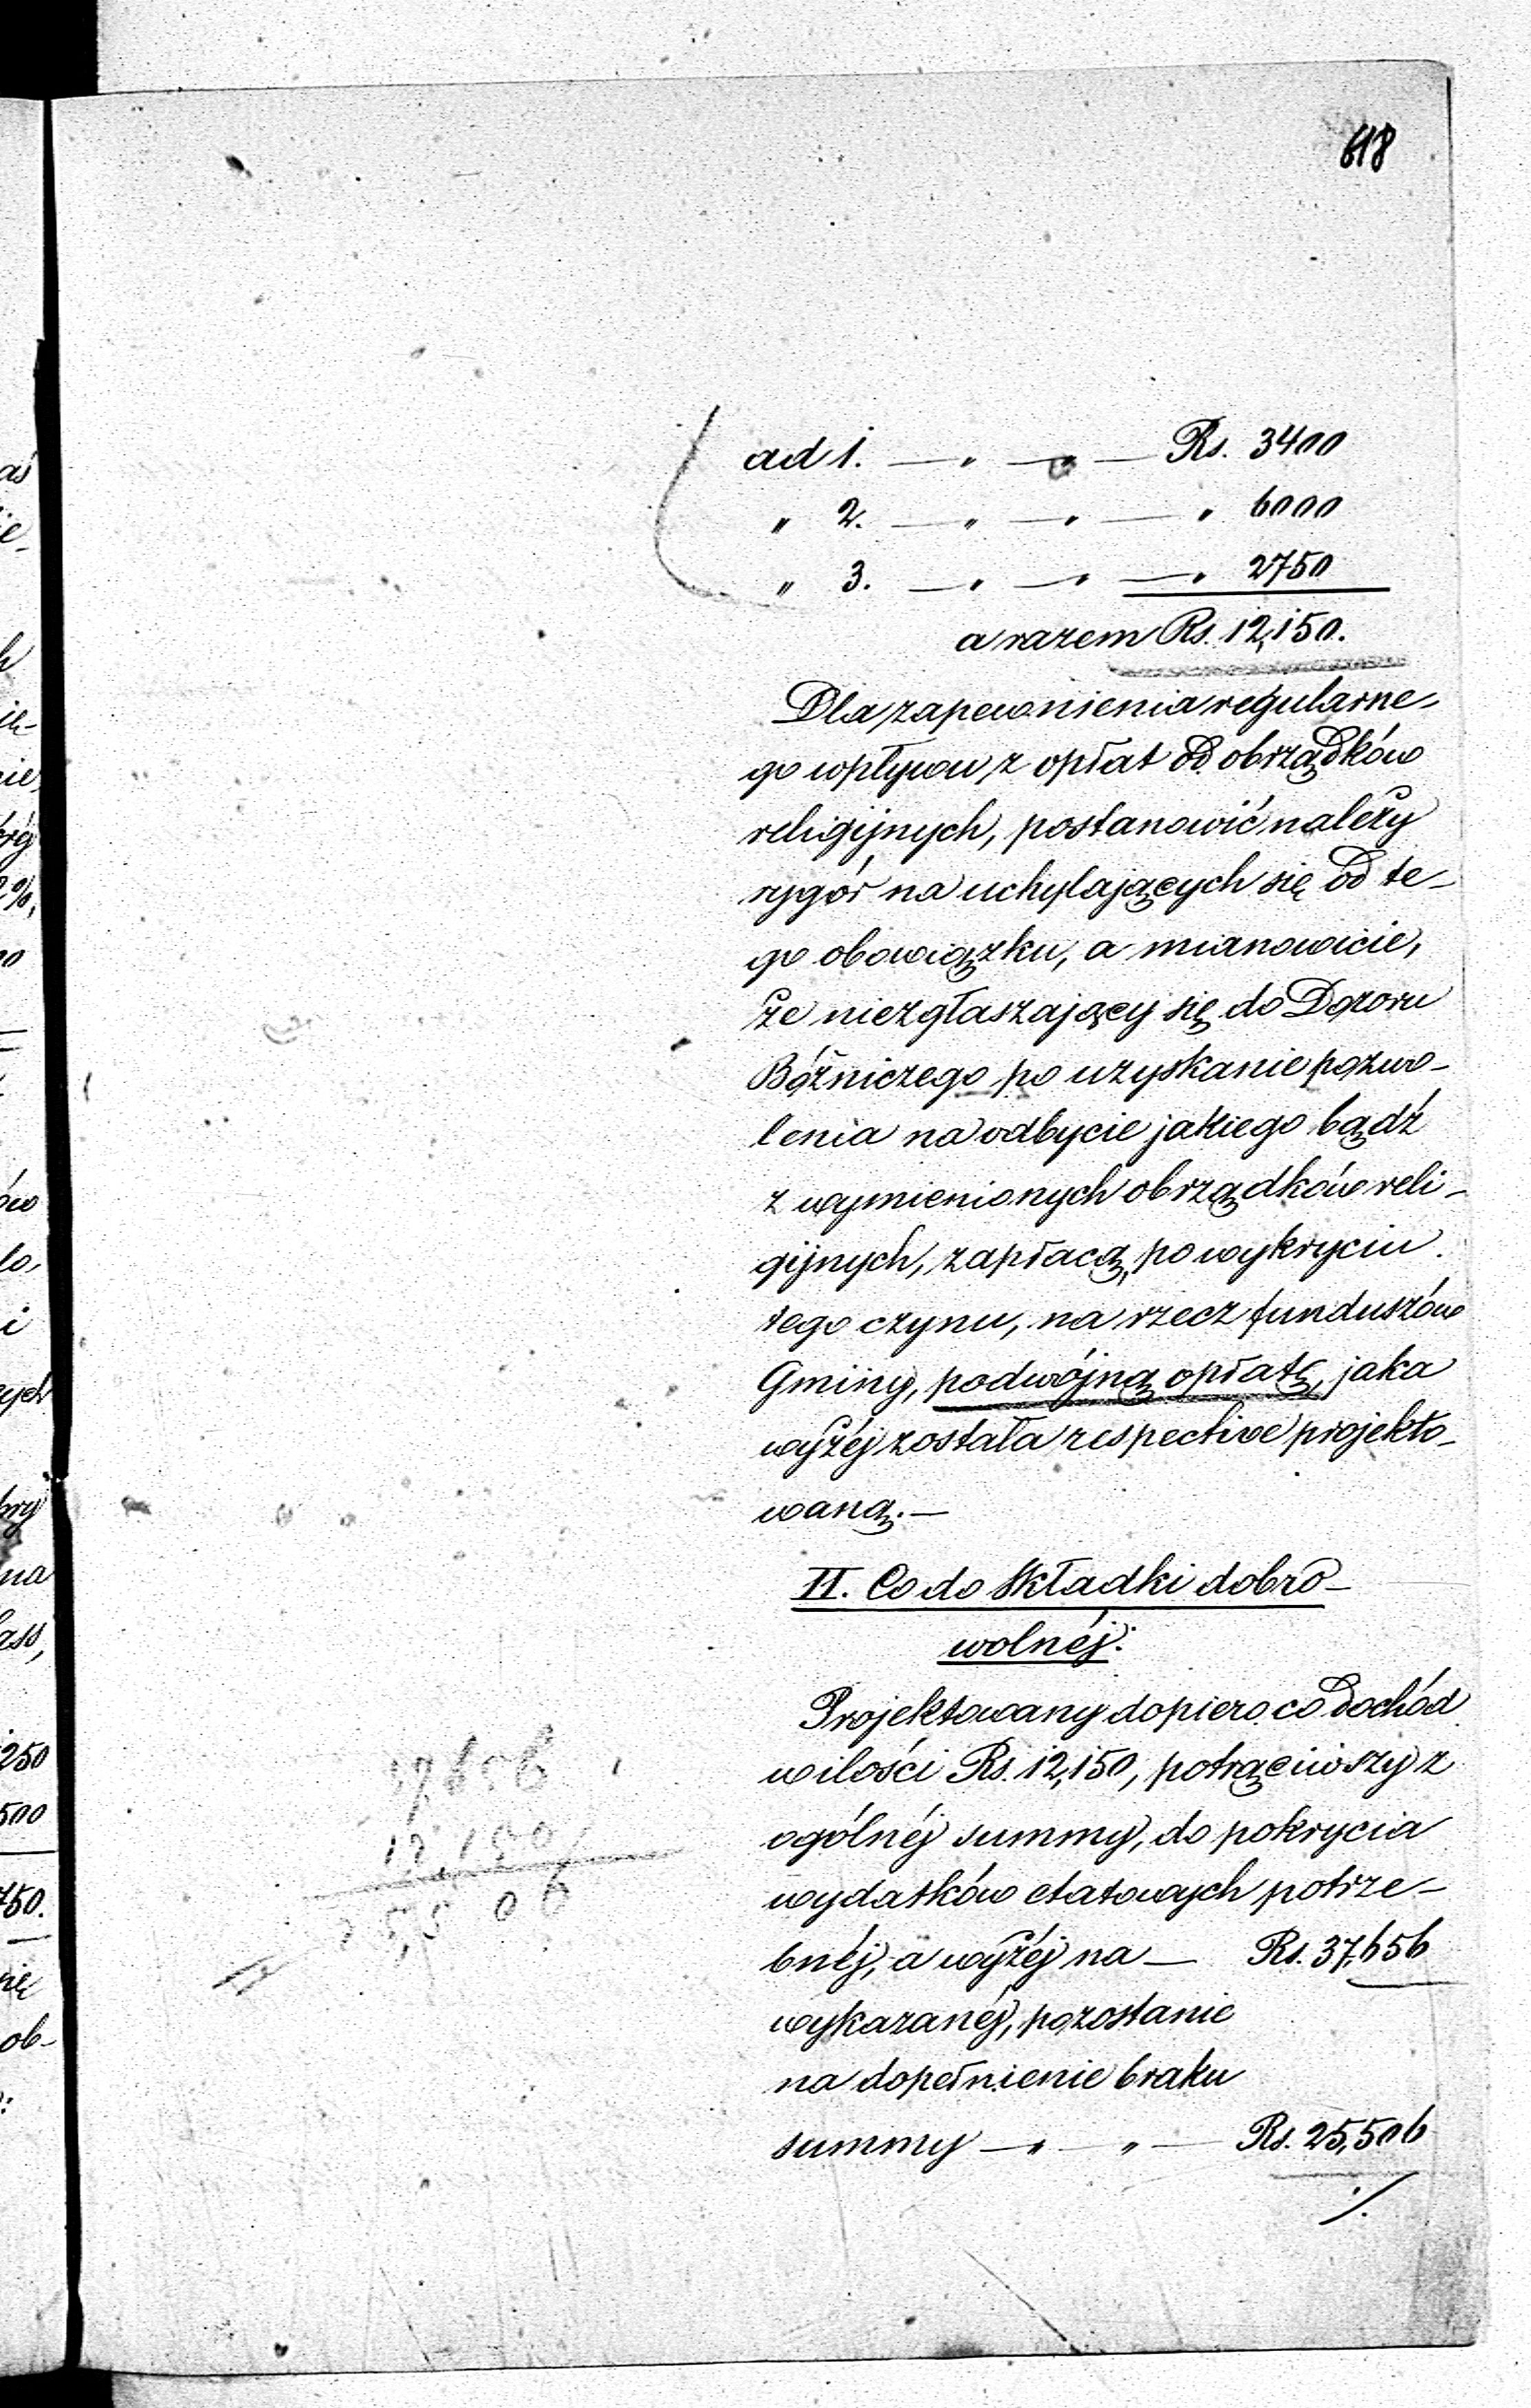 618
ad 1. — „ — „ — Rs. 3400
„ 2. — „ — „ — „ 6000
„ 3. — „ — „ — „ 2750
a razem Rs. 12,150.
Dla zapewnienia regularne-
go wpływu z opłat od obrządków
religijnych, postanowić należy
rygór na uchylających się od te-
go obowiązku, a mianowicie,
że niezgłaszający się do Dozoru
Bóżniczego po uzyskanie pozwo-
lenia na odbycie jakiego bądź
z wymienionych obrządków reli-
gijnych, zapłacą, po wykryciu
tego czynu, na rzecz funduszów
Gminy, podwójną opłatę, jaka
wyżéj została respective projekto-
waną.—
II. Co do składki dobro-
wolnéj:
Projektowany dopiero co dochód
w ilości Rs. 12,150, potrąciwszy z
ogólnéj summy, do pokrycia
wydatków etatowych potrze-
bnéj, a wyżéj na — Rs. 37,656
wykazanéj, pozostanie
na dopełnienie braku
summy — „ — „ — Rs. 25,506
./.
37656
12,150
25,506
aś
ie-
h
ie,
2%,
ów
lo,
i
ych
bry
na
lass,
250
500
750.
nię
ob-